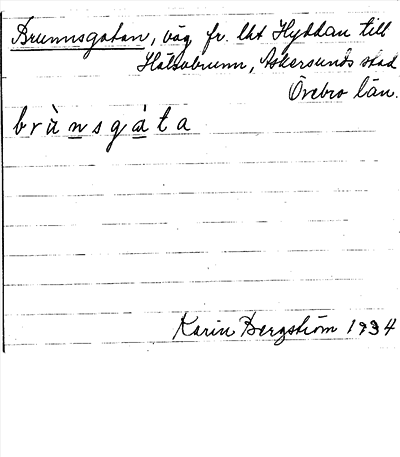 Brunnsgatan, väg fr. lht Hyddan till
Hälsobrunn, Askersunds stad
Örebro län.
brùnsgàta
Karin Bergström 1934